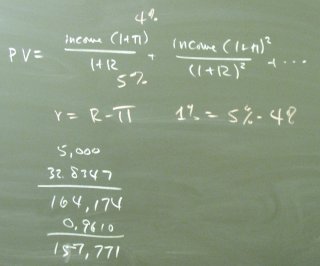 4%
PV = income (1+π) / 1+R + income (1+π)² / (1+R)² + ...
5%
r = R - π 1% = 5% - 4%
5,000
32.8347
164,174
0.9610
157,771